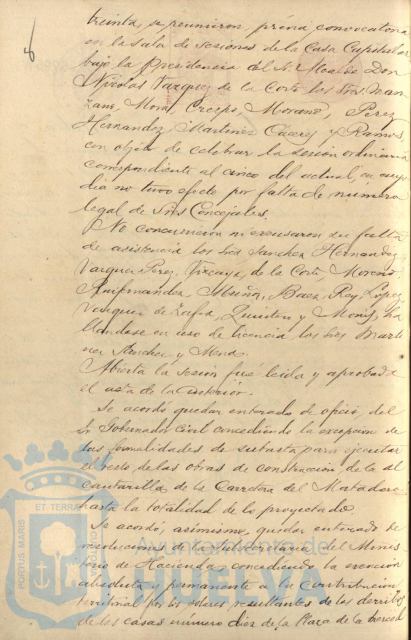 treinta, se reunieron, prévia convocatoria
en la Sala de sesiones de la Casa Capitular
bajo la Presidencia del Sr. Alcalde Don
Nicolas Vazquez de la Corte los Sres Man
zano, Mora, Crespo, Morano, Perez
Hernandez, Martinez Caceres y Ramos,
con objeto de celebrar la sesión ordinaria
correspondiente al cinco del actual, en cuyo
dia no tuvo efecto por falta de número
legal de Sres Concejales.
No concurrieron ni excusaron su falta
de asistencia los Sres Sanchez Hernandez,
Vazquez Perez, Vizcaya, de la Corte, Moreno,
Muñoz, Baez, Rey, Lopez,
Vazquez de Zafra, Quintero y Monis, ha
llandose en uso de licencia los Sres Marti
nez Sanchez y Mora.
Abierta la sesión fué leida y aprobada
el acta de la anterior.
Se acordó quedar enterado de oficio del
Sr Gobernador Civil concediendo la excepcion de
las formalidades de subasta para ejecutar
el resto de las obras de construcción de la al
cantarilla de la Carretera del Matadero
hasta la totalidad de lo proyectado.
Se acordó, asimismo, quedar enterado de
resoluciones de la Subsecretaria del Minis
terio de Hacienda concediendo la exención
absoluta y permanente a la contribución
territorial por los solares resultantes de los derribos
de las casas número diez de la Plaza de la Merced
PORTUS MARIS
ET TERRAE
Ayuntamiento de
HUELVA